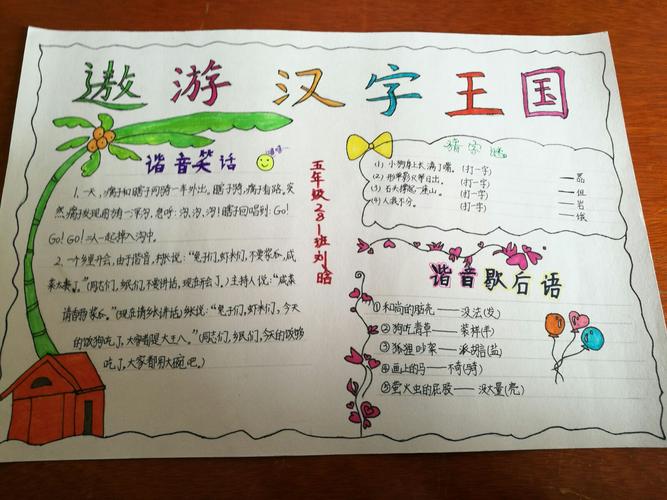 遨游汉字王国
谐音笑话
嘻嘻~
1.一天,瘸子和瞎子同骑一车外出。瞎子骑,瘸子看路。突
然瘸子发现前方有一深沟,急呼:沟,沟,沟!瞎子回唱到:Go!
Go! Go! 二人一起掉入沟中。
2.一个乡里开会,由于谐音,村长说:“兔子们,虾米们,不要酱瓜,咸
菜太贵了。”(同志们,乡民们,不要讲话,现在开会了。)主持人说:“咸菜
请香肠酱瓜。”(现在请乡长讲话)乡长说:“兔子们,虾米们,今天
的饭狗吃了,大家都是大王八。”(同志们,乡民们,今天的饭够
吃了,大家都用大碗吧。)
五年级281班刘晗
猜字谜
(1)小狗身上长满了嘴。(打一字) —品
(2)形单影只单日出。(打一字) —但
(3)石大撑起一座山。(打一字) —岩
(4)人我不分。(打一字) —俄
谐音歇后语
①和尚的脑壳——没法(发)
②狗吃青草——装样(羊)
③狐狸吵菜——胡(盐)
④画上的马——不奇(骑)
⑤萤火虫的屁股——没大量(亮)